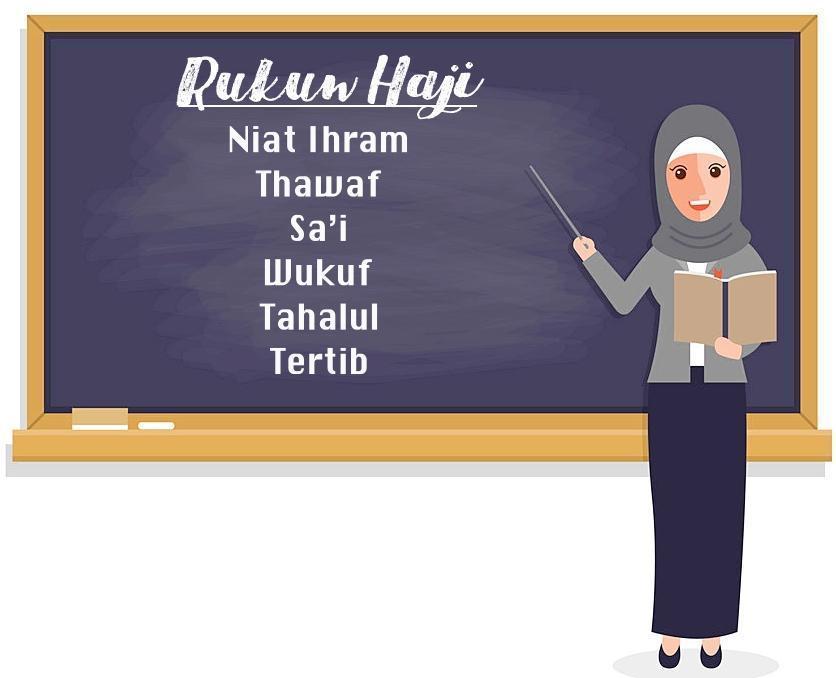 Rukun Haji
Niat Ihram
Thawaf
Sa'i
Wukuf
Tahalul
Tertib